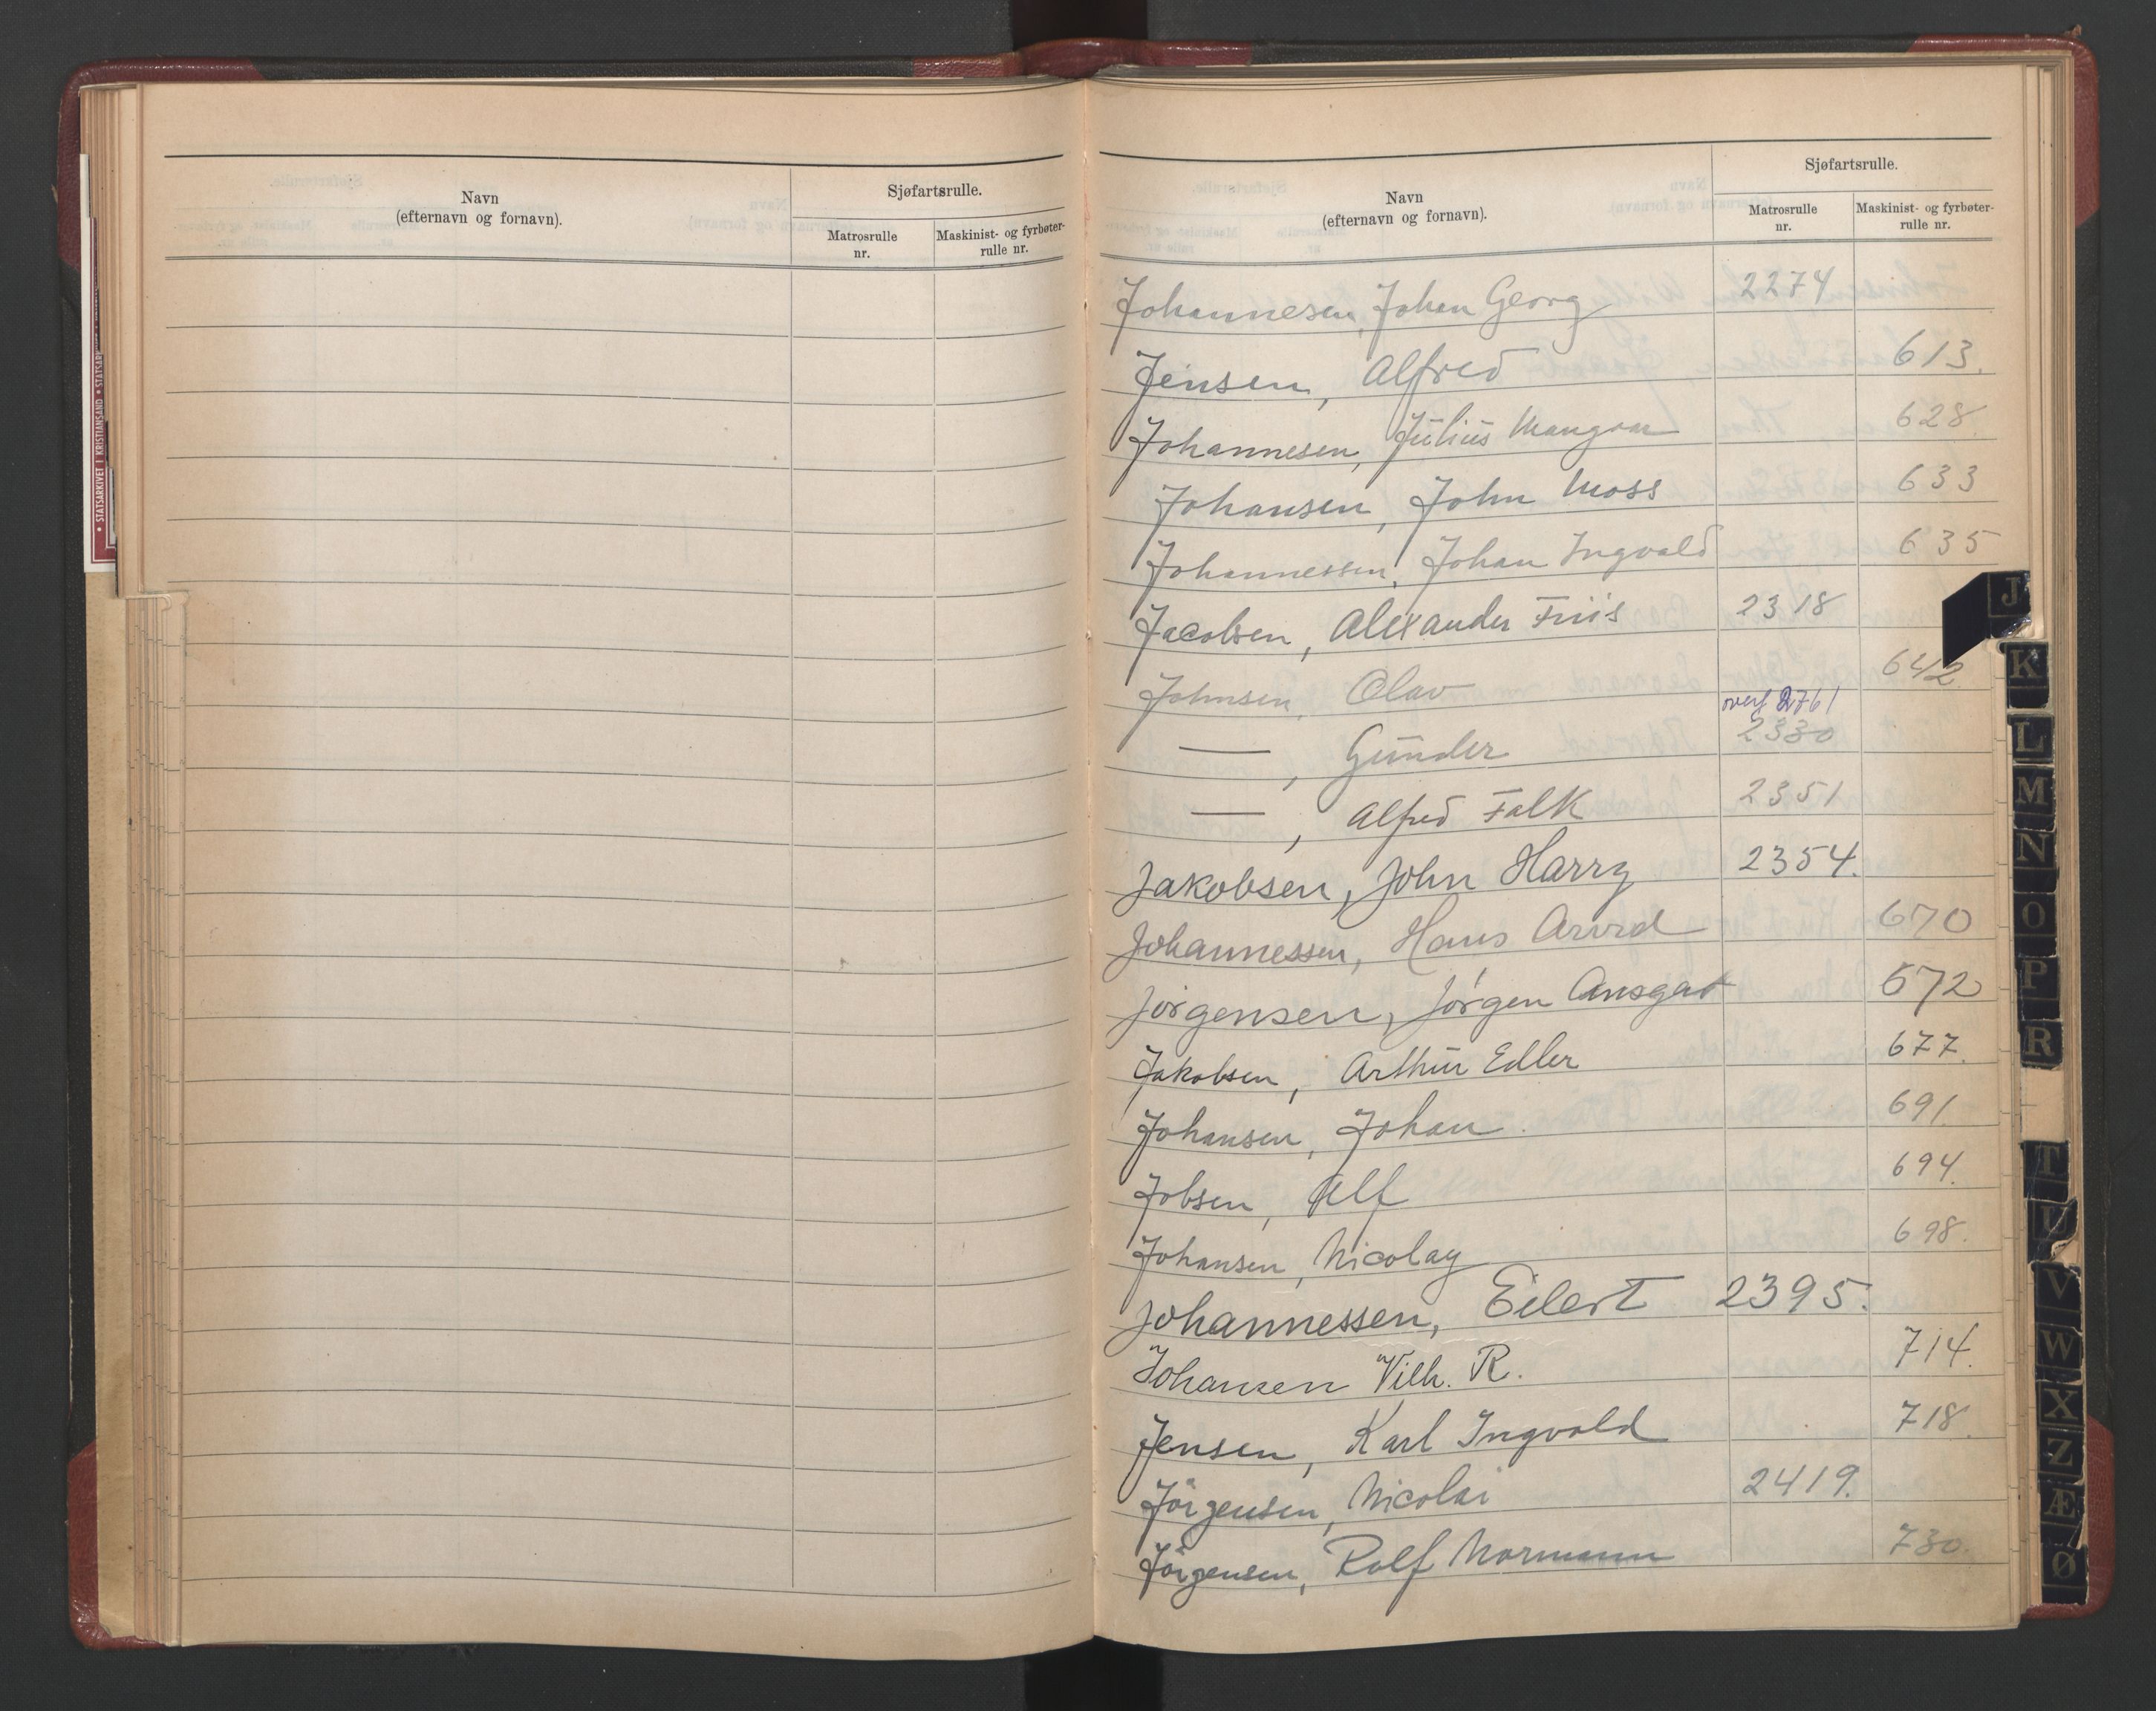 Navn
(efternavn og fornavn).
Sjøfartsrulle.
Matrosrulle
nr.
Maskinist- og fyrbøter-
rulle nr.
Navn
(efternavn og fornavn).
Sjøfartsrulle.
Matrosrulle
nr.
Maskinist- og fyrbøter-
rulle nr.
Johannesen, Johan Georg 2274
Jensen, Alfred 613.
Johannesen, Julius Mangvar 628.
Johansen, John Moss 633
Johannessen, Johan Ingvald 635
Jacobsen, Alexander Friis 2318
Johnsen, Olav 642
overf 2761
—, Gunder 2330
—, Alfred Falk 2351
Jakobsen, John Harry 2354.
Johannessen, Hans Arvid 670
Jørgensen, Jørgen Ansgar 672
Jakobsen, Arthur Edler 677.
Johansen, Johan. 691.
Jobsen, Alf 694.
Johansen, Nicolay 698.
Johannessen, Eilert 2395.
Johansen Vilh. R. 714.
Jensen, Karl Ingvald 718.
Jörgensen, Nicolai 2419.
Jörgensen, Rolf Normann 730.
STATSARKIVET I KRISTIANSAND
J
K
L
M
N
O
P
R
T
U
V
W
X
Z
Æ
Ø